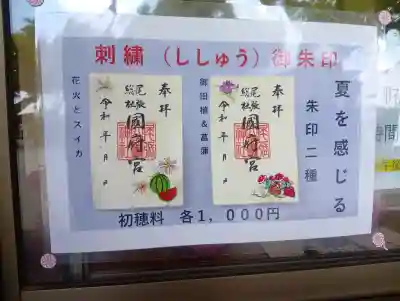 刺繍(ししゅう)御朱印
夏を感じる
朱印二種
御田植&菖蒲
奉拝
尾張総社
國府宮
令和 年 月 日
花火とスイカ
奉拝
尾張総社
國府宮
令和 年 月 日
初穂料 各1,000円